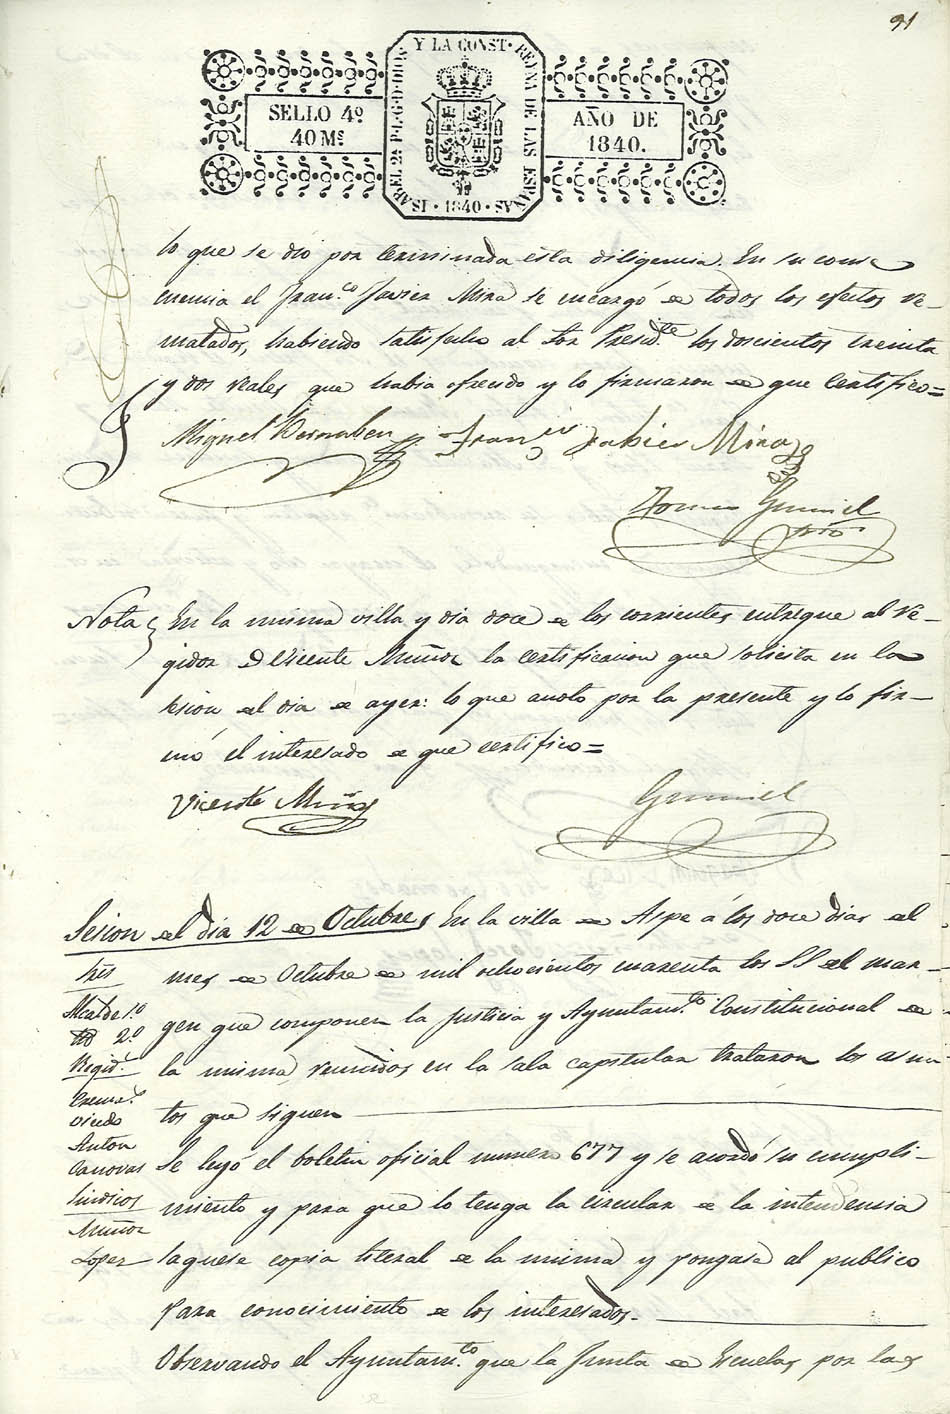 91
ISABEL 2ª P. L. G. D. DIOS Y LA CONST. REYNA DE LAS ESPAÑAS · 1840 ·
SELLO 4º
40 Ms
AÑO DE
1840.
lo que se dió por terminada esta diligencia. En su conse
cuencia el Franco Javier Mira se encargó de todos los efectos re-
matados, habiendo satisfecho al Sor Presidte los doscientos treinta
y dos reales que habia ofrecido y lo firmaron de que Certifico=
Miguel Bernabeu Franco Jabier Mira
Nota En la misma villa y dia doce de los corrientes entregue al Re-
gidor D Vicente Muñoz la certificacion que solicita en la
sesion del dia de ayer: lo que anoto por la presente y lo fir-
mó el interesado de que certifico=
Vicente Muñoz
Sesion del dia 12 de Octubre En la villa de Aspe á los doce dias del
mes de Octubre de mil ochocientos cuarenta los SS del mar-
gen que componen la Justicia y Ayuntamto Constitucional de
la misma, reunidos en la sala capitular trataron los asun
tos que siguen
Sres
Alcalde 1º
2º
Regids
Cremas
Vicedo
Anton
Canovas
Sindicos
Muñoz
Lopez
Se leyó el boletin oficial numero 677 y se acordó su cumpli-
miento y para que lo tenga la circular de la intendencia
saquese copia literal de la misma y pongase al publico
para conocimiento de los interesados.
Observando el Ayuntamto que la Junta de Escuelas por las